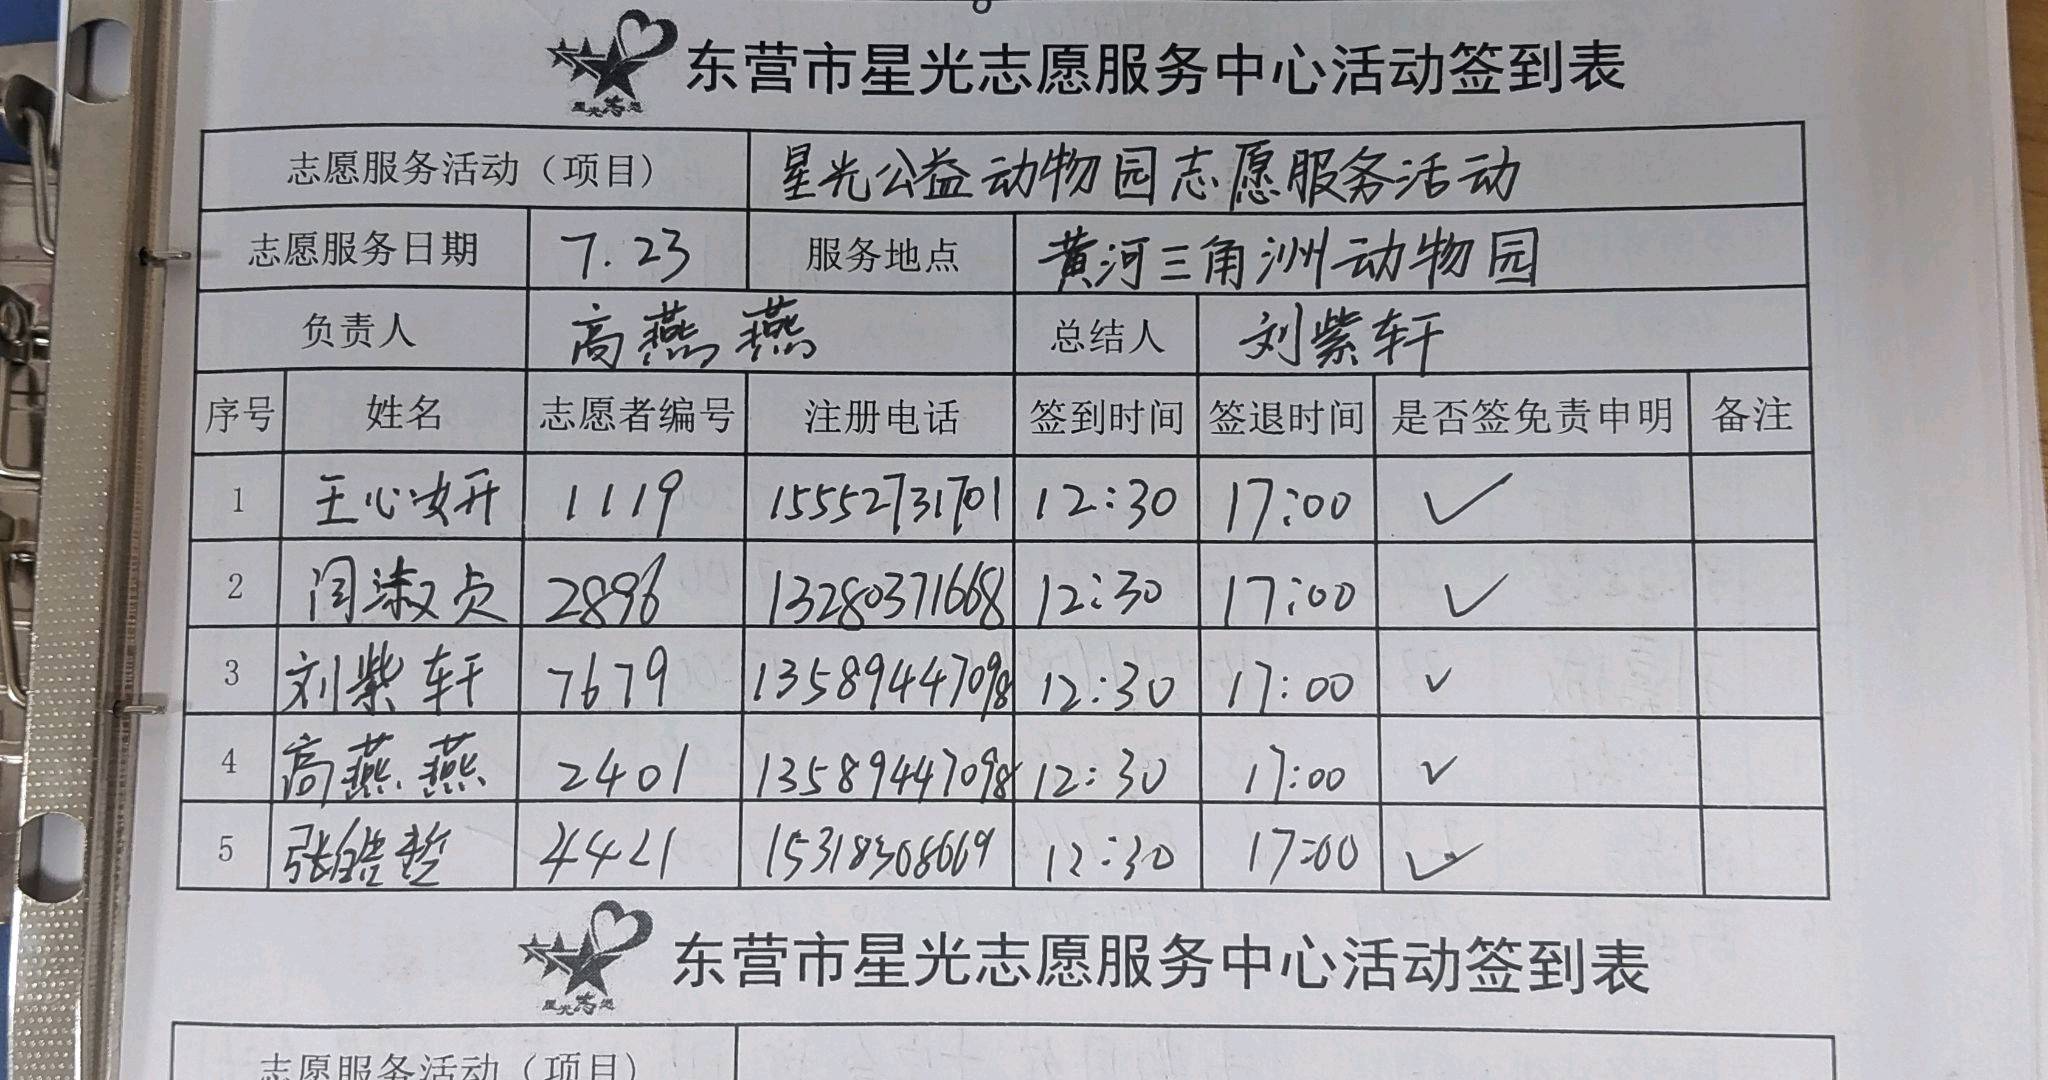 东营市星光志愿服务中心活动签到表
志愿服务活动（项目） 星光公益动物园志愿服务活动
志愿服务日期 7.23 服务地点 黄河三角洲动物园
负责人 高燕燕 总结人 刘紫轩
序号 姓名 志愿者编号 注册电话 签到时间 签退时间 是否签免责申明 备注
1 王心妍 1119 15552731701 12:30 17:00 ✓
2 闫淑贞 2896 13280371668 12:30 17:00 ✓
3 刘紫轩 7679 13589447098 12:30 17:00 ✓
4 高燕燕 2401 13589447098 12:30 17:00 ✓
5 张皓哲 4421 15318308669 12:30 17:00 ✓
东营市星光志愿服务中心活动签到表
志愿服务活动（项目）